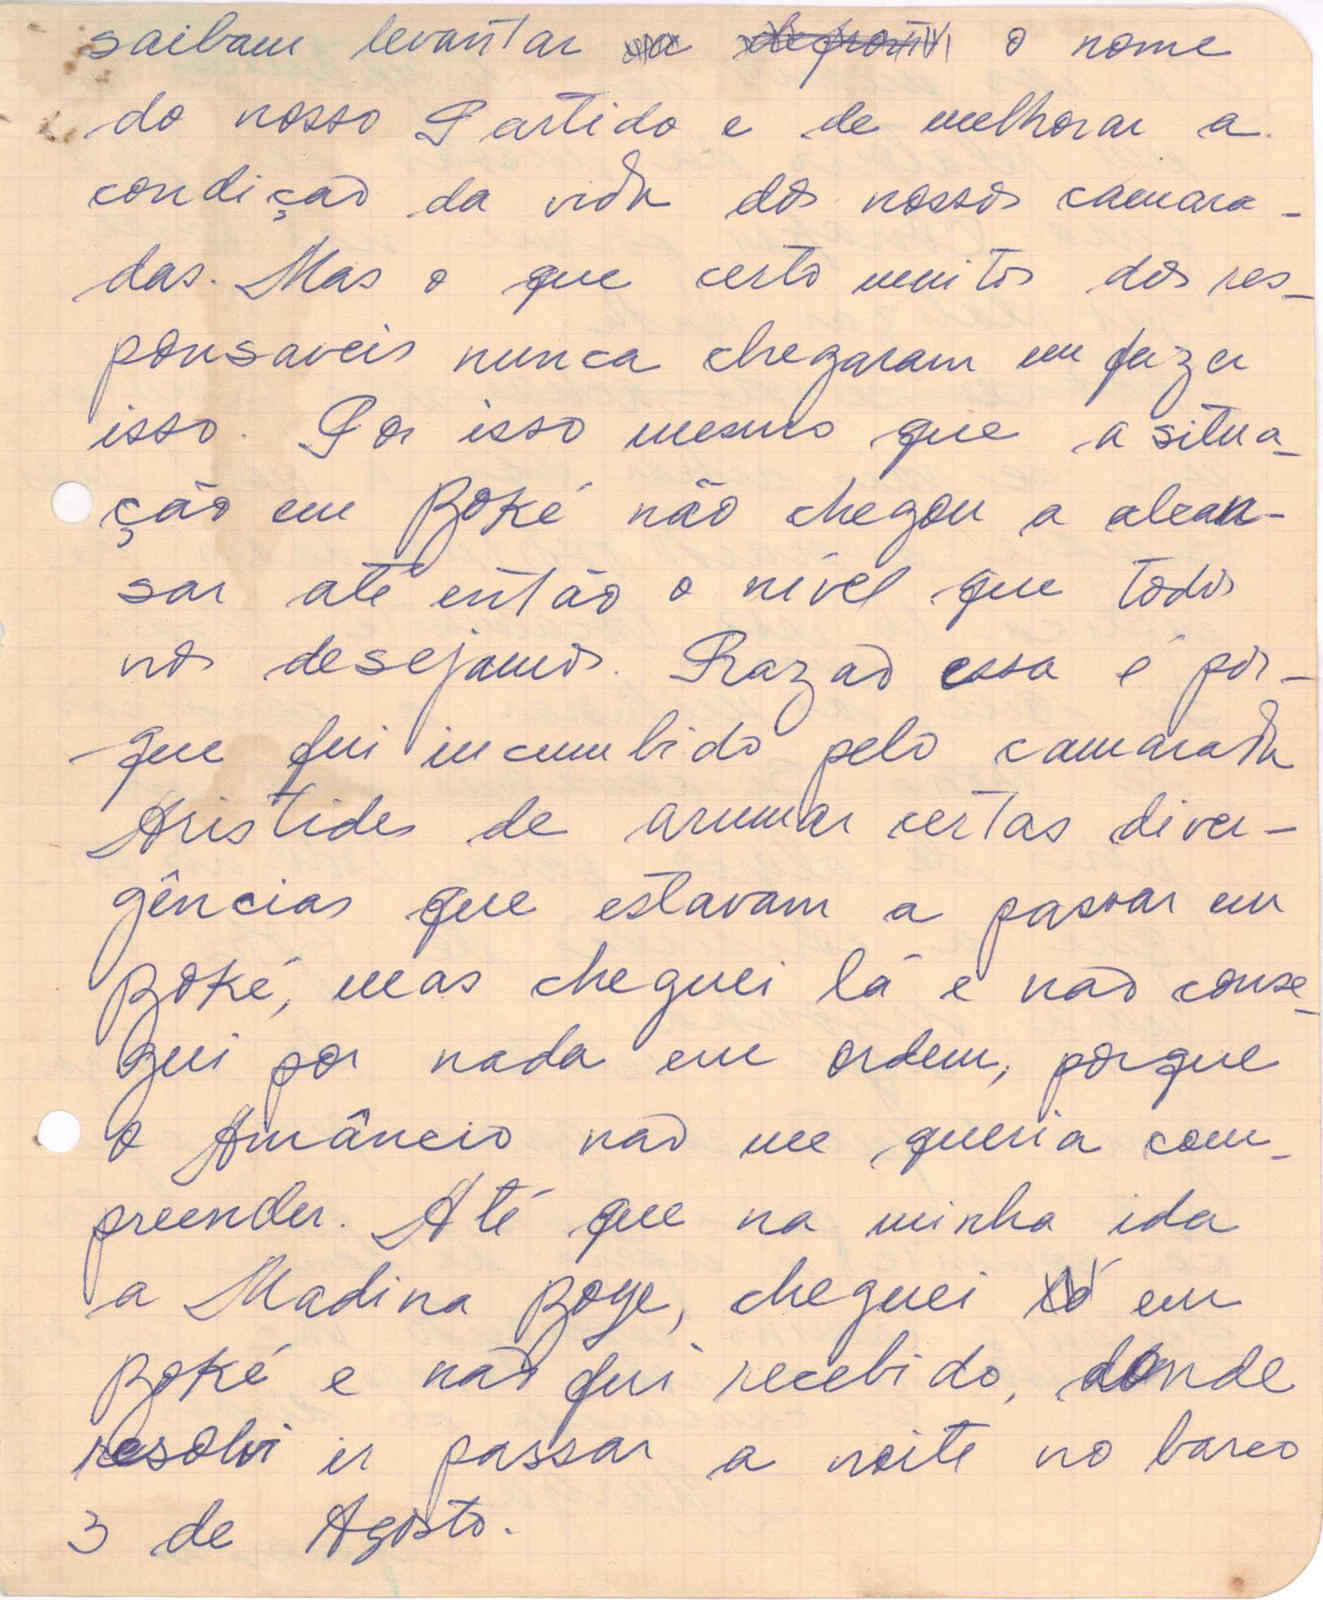 saibam levantar o nome
do nosso Partido e de melhorar a
condição da vida dos nossos camara-
das. Mas o que certo muitos dos res-
ponsaveis nunca chegaram em fazer
isso. Por isso mesmo que a situa-
ção em Boké não chegou a alcan-
sar até então o nível que todos
nos desejamos. Razão essa é por-
que fui incumbido pelo camarada
Aristides de arumar certas diver-
gências que estavam a passar em
Boké, mas cheguei lá e não conse-
gui por nada em ordem, porque
o Amâncio não me queria com-
preender. Até que na minha ida
a Madina Boye, cheguei em
Boké e não fui recebido, donde
resolvi ir passar a noite no barco
3 de Agosto.